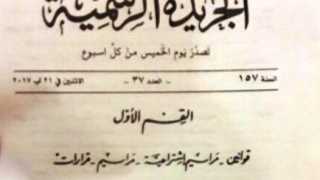 الجريدة الرسمية
تصدر يوم الخميس من كل اسبوع
السنة ١٥٧ - العدد ٣٧ - الاثنين في ٢١ آب ٢٠١٧
القسم الأول
قوانين - مراسيم إشتراعية - مراسيم - قرارات